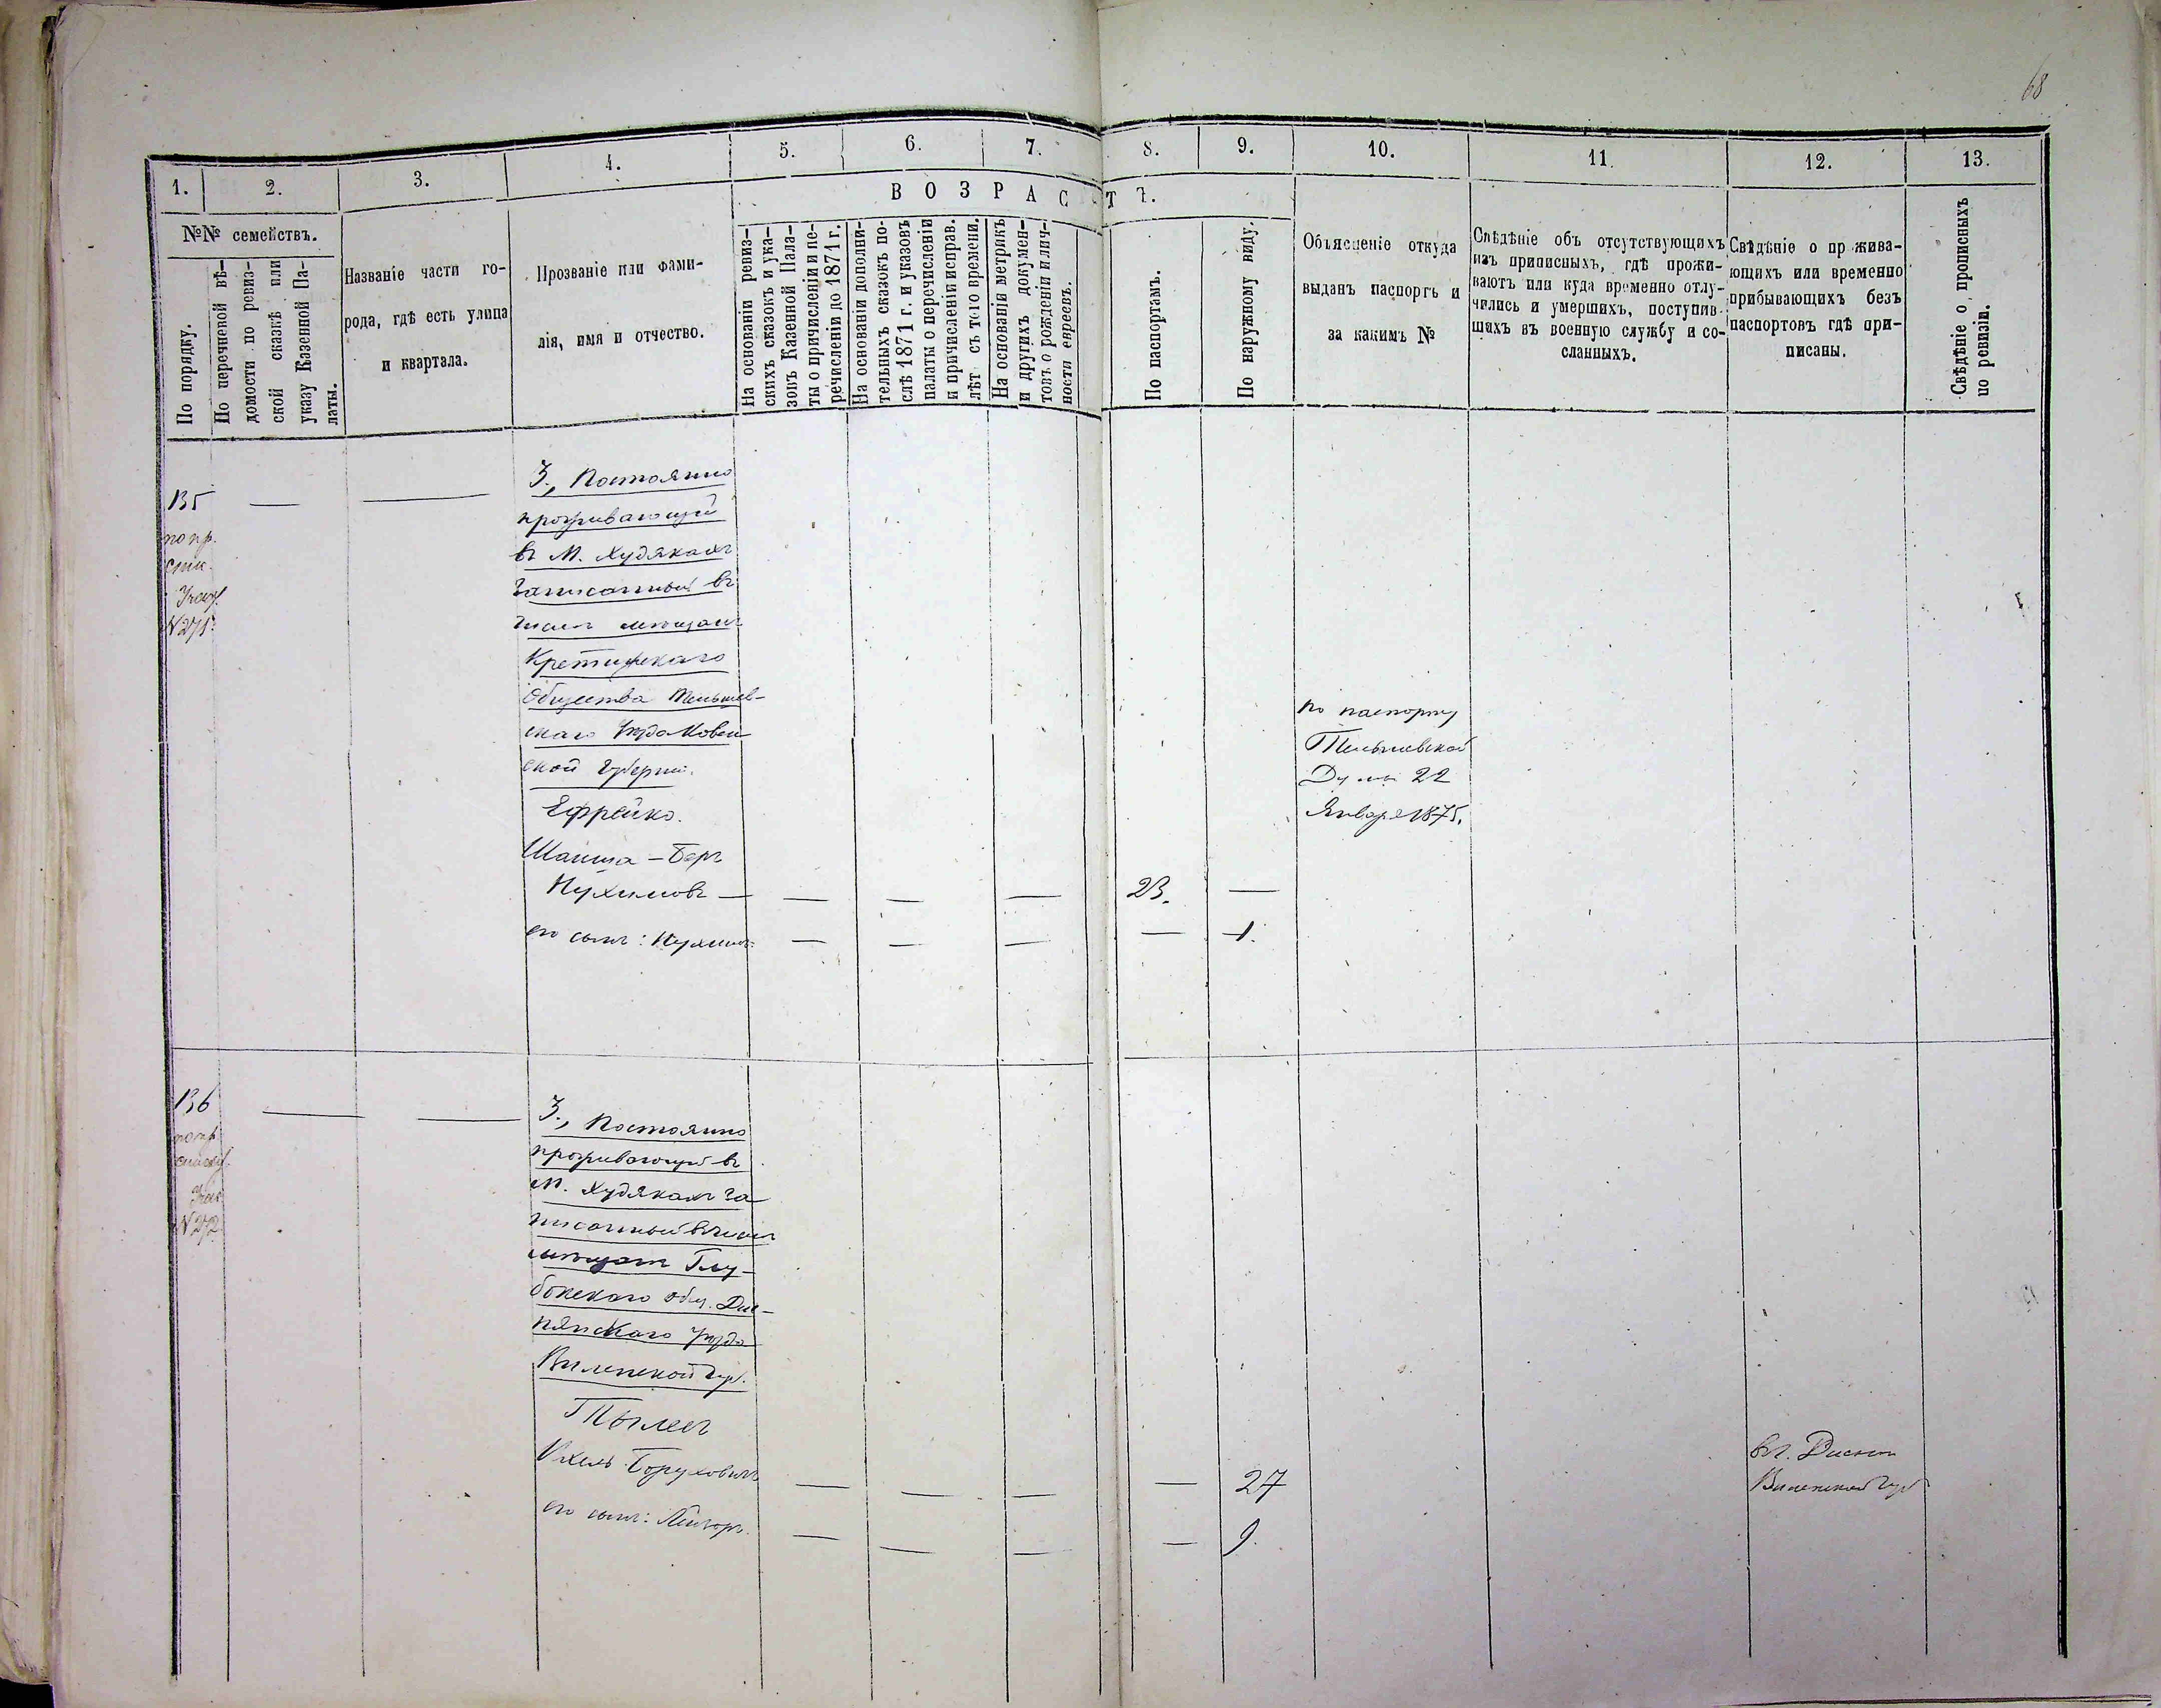 68
1. 2. 3. 4. 5. 6. 7. 8. 9. 10. 11. 12. 13.
№№ семействъ.
По порядку.
По перечневой вѣ-
домости по ревиз-
ской сказкѣ или
указу Казенной Па-
латы.
Названіе части го-
рода, гдѣ есть улица
и квартала.
Прозваніе или фами-
лія, имя и отчество.
ВОЗРАСТЪ.
На основаніи ревиз-
скихъ сказокъ и ука-
зовъ Казенной Пала-
ты о причисленіи и пе-
речисленіи до 1871 г.
На основаніи дополни-
тельныхъ сказокъ по-
слѣ 1871 г. и указовъ
палаты о перечисленіи
и причисленіи исправ.
лѣт съ того времени.
На основаніи метрикъ
и другихъ докумен-
товъ о рожденіи и лич-
ности евреевъ.
По паспортамъ.
По наружному виду.
Объясненіе откуда
выданъ паспортъ и
за какимъ №
Свѣдѣніе объ отсутствующихъ
изъ приписныхъ, гдѣ прожи-
ваютъ или куда временно отлу-
чились и умершихъ, поступив-
шихъ въ военную службу и со-
сланныхъ.
Свѣдѣніе о прожива-
ющихъ или временно
прибывающихъ безъ
паспортовъ гдѣ при-
писаны.
Свѣдѣніе о прописныхъ
по ревизіи.
135
по пр.
спис.
N 271.
3., Постоянно
проживающій
въ М. Худякахъ
Записанный въ
числѣ мѣщанъ
Кретингскаго
Общества Тельшев-
скаго Уѣзда Ковен
ской Губерніи.
Ефрейко.
Шапша - Беръ
Нухимовъ — — — — 23. —
его сынъ: Нухимъ. — — — — 1.
По паспорту
Тельшевской
Думы 22
Января 1875.
136
по пр
списку
N 272
3., Постоянно
проживающій въ
М. Худякахъ За
писанный въ числѣ
мѣщанъ Глу-
бокскаго Общ. Дис-
нянскаго Уѣзда
Виленской Губ.
Боруховичъ — — — — 27
его сынъ: — — — — 9.
въ г. Диснѣ
Виленской Губ